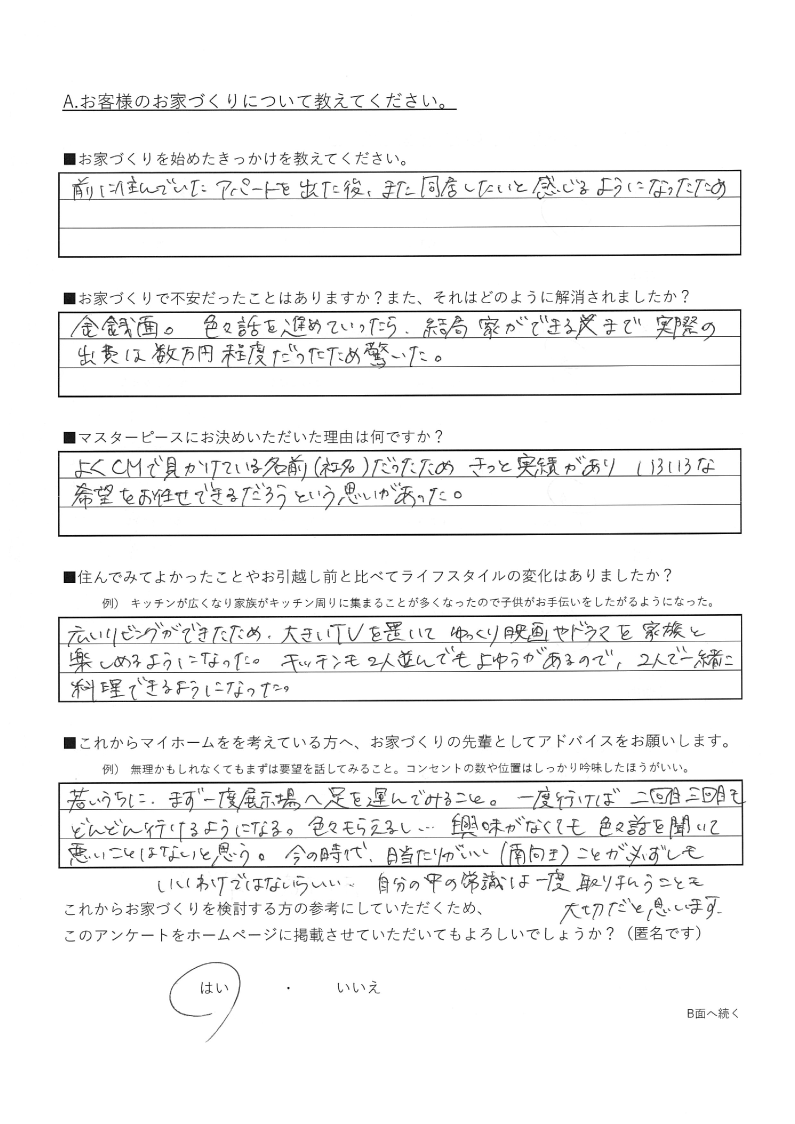 A.お客様のお家づくりについて教えてください。
■お家づくりを始めたきっかけを教えてください。
前に住んでいたアパートを出た後、また同居したいと感じるようになったため
■お家づくりで不安だったことはありますか？また、それはどのように解消されましたか？
金銭面。色々話を進めていったら、結局家ができるまで実際の
出費は数万円程度だったため驚いた。
■マスターピースにお決めいただいた理由は何ですか？
よくCMで見かけている名前(社名)だったため きっと実績があり いろいろな
希望をお任せできるだろうという思いがあった。
■住んでみてよかったことやお引越し前と比べてライフスタイルの変化はありましたか？
例） キッチンが広くなり家族がキッチン周りに集まることが多くなったので子供がお手伝いをしたがるようになった。
広いリビングができたため、大きいTVを置いて ゆっくり映画やドラマを家族と
楽しめるようになった。キッチンも2人並んでもよゆうがあるので、2人で一緒に
料理できるようになった。
■これからマイホームをを考えている方へ、お家づくりの先輩としてアドバイスをお願いします。
例） 無理かもしれなくてもまずは要望を話してみること。コンセントの数や位置はしっかり吟味したほうがいい。
若いうちに、まず一度展示場へ足を運んでみること。一度行けば 二回目三回目も
どんどん行けるようになる。色々もらえるし… 興味がなくても 色々話を聞いて
悪いことはないと思う。今の時代、日当たりがいい(南向き)ことが必ずしも
いいわけではないらしい、自分の中の常識は一度取りはらうことも
大切だと思います。
これからお家づくりを検討する方の参考にしていただくため、
このアンケートをホームページに掲載させていただいてもよろしいでしょうか？（匿名です）
はい ・ いいえ
B面へ続く